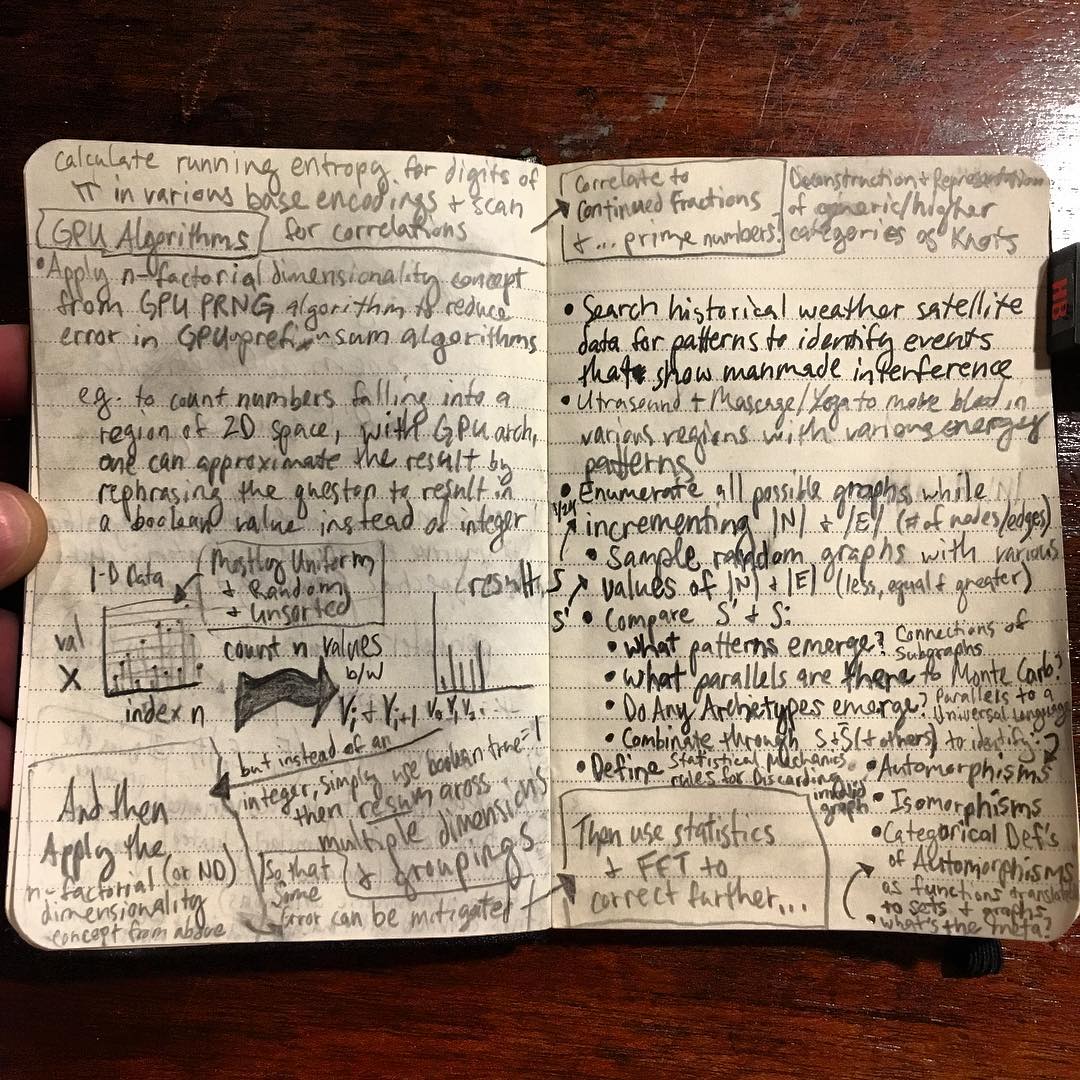 calculate running entropy for digits of
π in various base encodings + scan
GPU Algorithms for correlations
• Apply n-factorial dimensionality concept
from GPU PRNG algorithm to reduce
error in GPU prefix sum algorithms
eg. to count numbers falling into a
region of 2D space, with GPU arch,
one can approximate the result by
rephrasing the question to result in
a boolean value instead of integer
1-D Data
Mostly Uniform
+ Random
+ Unsorted
val
X
index n
count n values
b/w
Vi + Vi+1
result
V0 V1 V2..
but instead of an
integer, simply use boolean true=1
then resum across
multiple dimensions
& groupings
So that
Some
Error can be mitigated
And then
Apply the
n-factorial (or ND)
dimensionality
concept from above
Correlate to
Continued Fractions
+ ... prime numbers.
Deconstruction + Representation
of generic/higher
categories of Knots
• Search historical weather satellite
data for patterns to identify events
that show manmade interference
• Utrasound + Massage/Yoga to move blood in
various regions with various energy
patterns
• Enumerate all possible graphs while
incrementing |N| + |E| (# of nodes/edges)
• Sample random graphs with various
S values of |N| + |E| (less, equal & greater)
S' • Compare S' & S:
• What patterns emerge? Connections of
Subgraphs
• What parallels are there to Monte Carlo?
• Do Any Archetypes emerge? Parallels to a
Universal Language
• Combinate through S+S (+ others) to identify:
• Define Statistical Mechanics
rules for Discarding
invalid
graph
• Automorphisms
• Isomorphisms
• Categorical Def's
of Automorphisms
as functions translated
to sets + graphs
• What's the meta?
Then use statistics
& FFT to
correct further...
HB